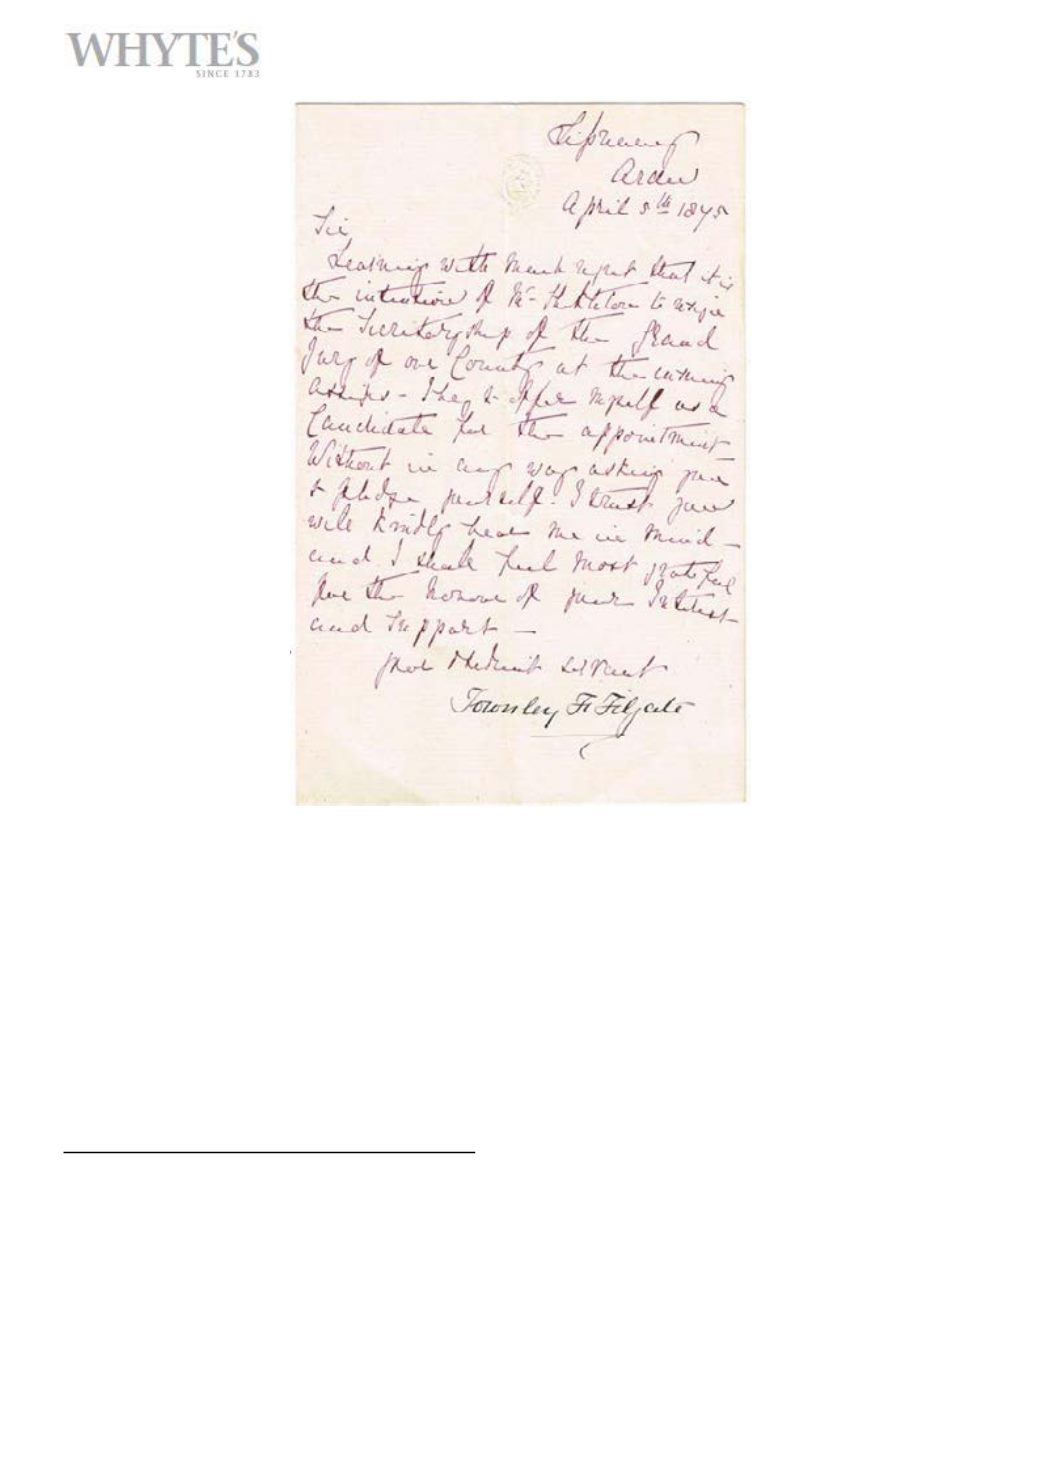 WHYTE'S
SINCE 1783
Ardee
April 5th 1875
Sir,
Learning with much regret that it is
the intention of Mr to resign
the Secretaryship of the Grand
Jury of our County at the coming
Assizes - I beg to offer myself as a
Candidate for the appointment
Without in any way asking you
to pledge yourself. I trust you
will kindly bear me in mind -
and I shall feel most grateful
for the honour of your Interest
and Support -
your obedient servant
Townley F Filgate